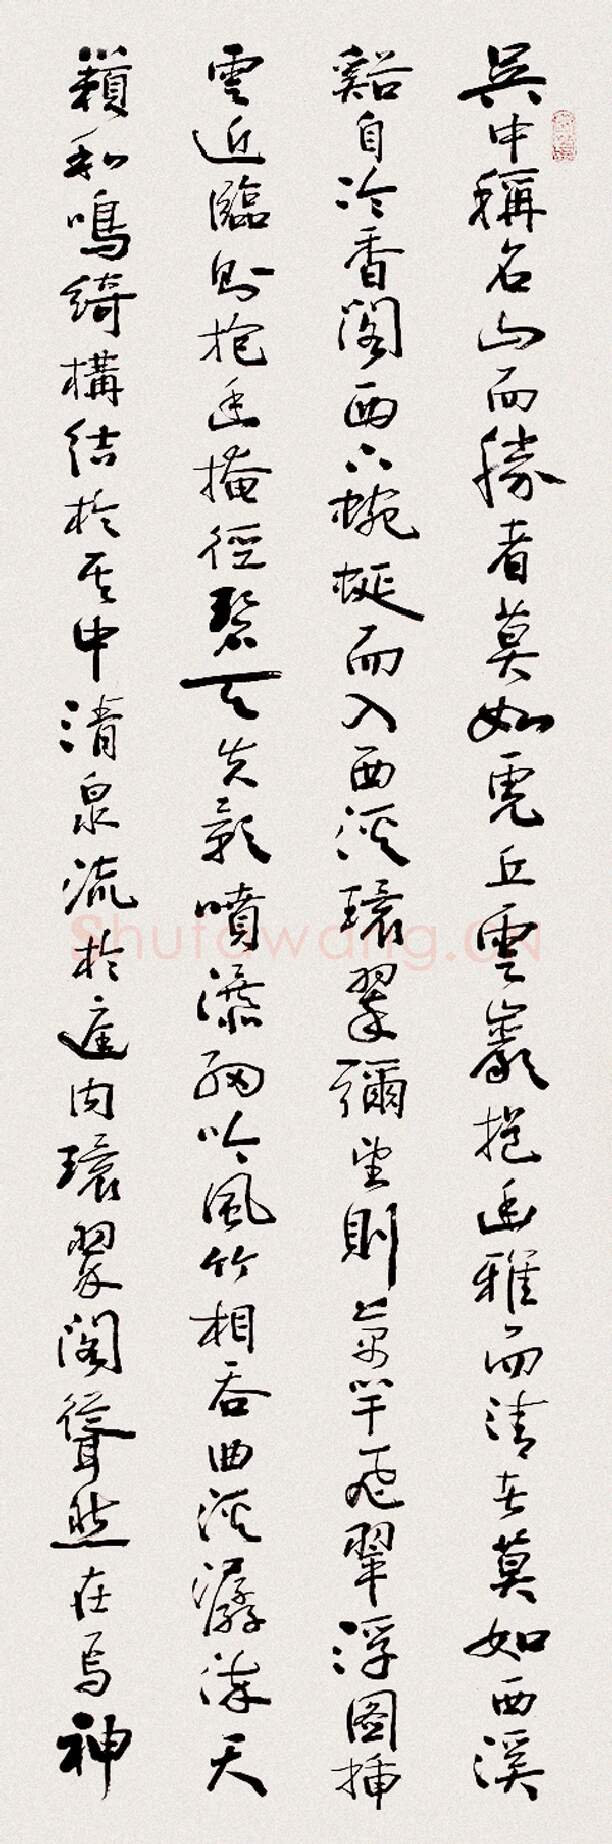 吳中稱名山而勝者莫如虎丘雲巖挹幽雅而清者莫如西溪
谿自冷香閣西下蜿蜒而入西溪環翠彌望則萬竿飛翠浮圖插
雲近臨則抱幽掩徑碧天失影噴瀑細吟風竹相吞曲溪潺湲天
籟和鳴綺構結於其中清泉流於庭內環翠閣聳然在焉神
Shufawang.CN